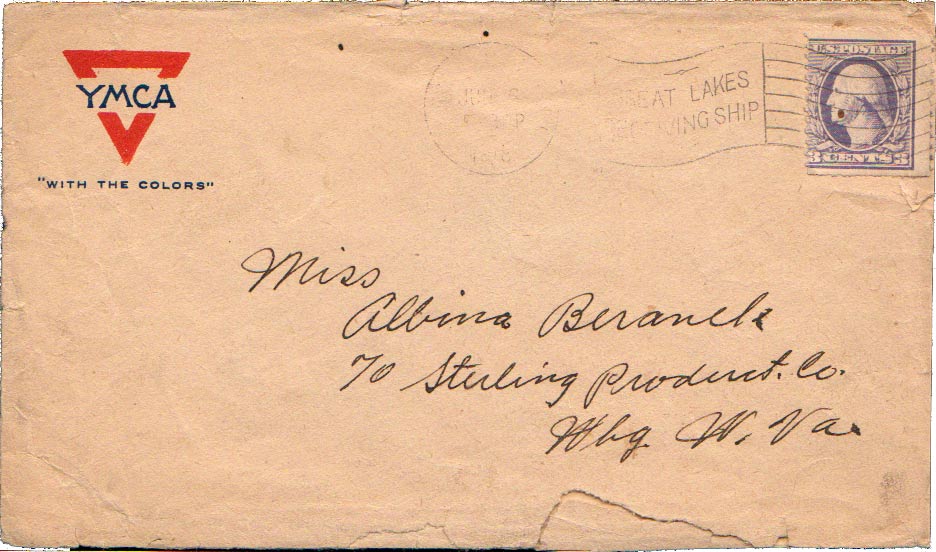 YMCA
"WITH THE COLORS"
GREAT LAKES
RECEIVING SHIP
U.S. POSTAGE
3 CENTS 3
Miss
Albina Beranek
70 Sterling Product. Co.
Whg W. Va.